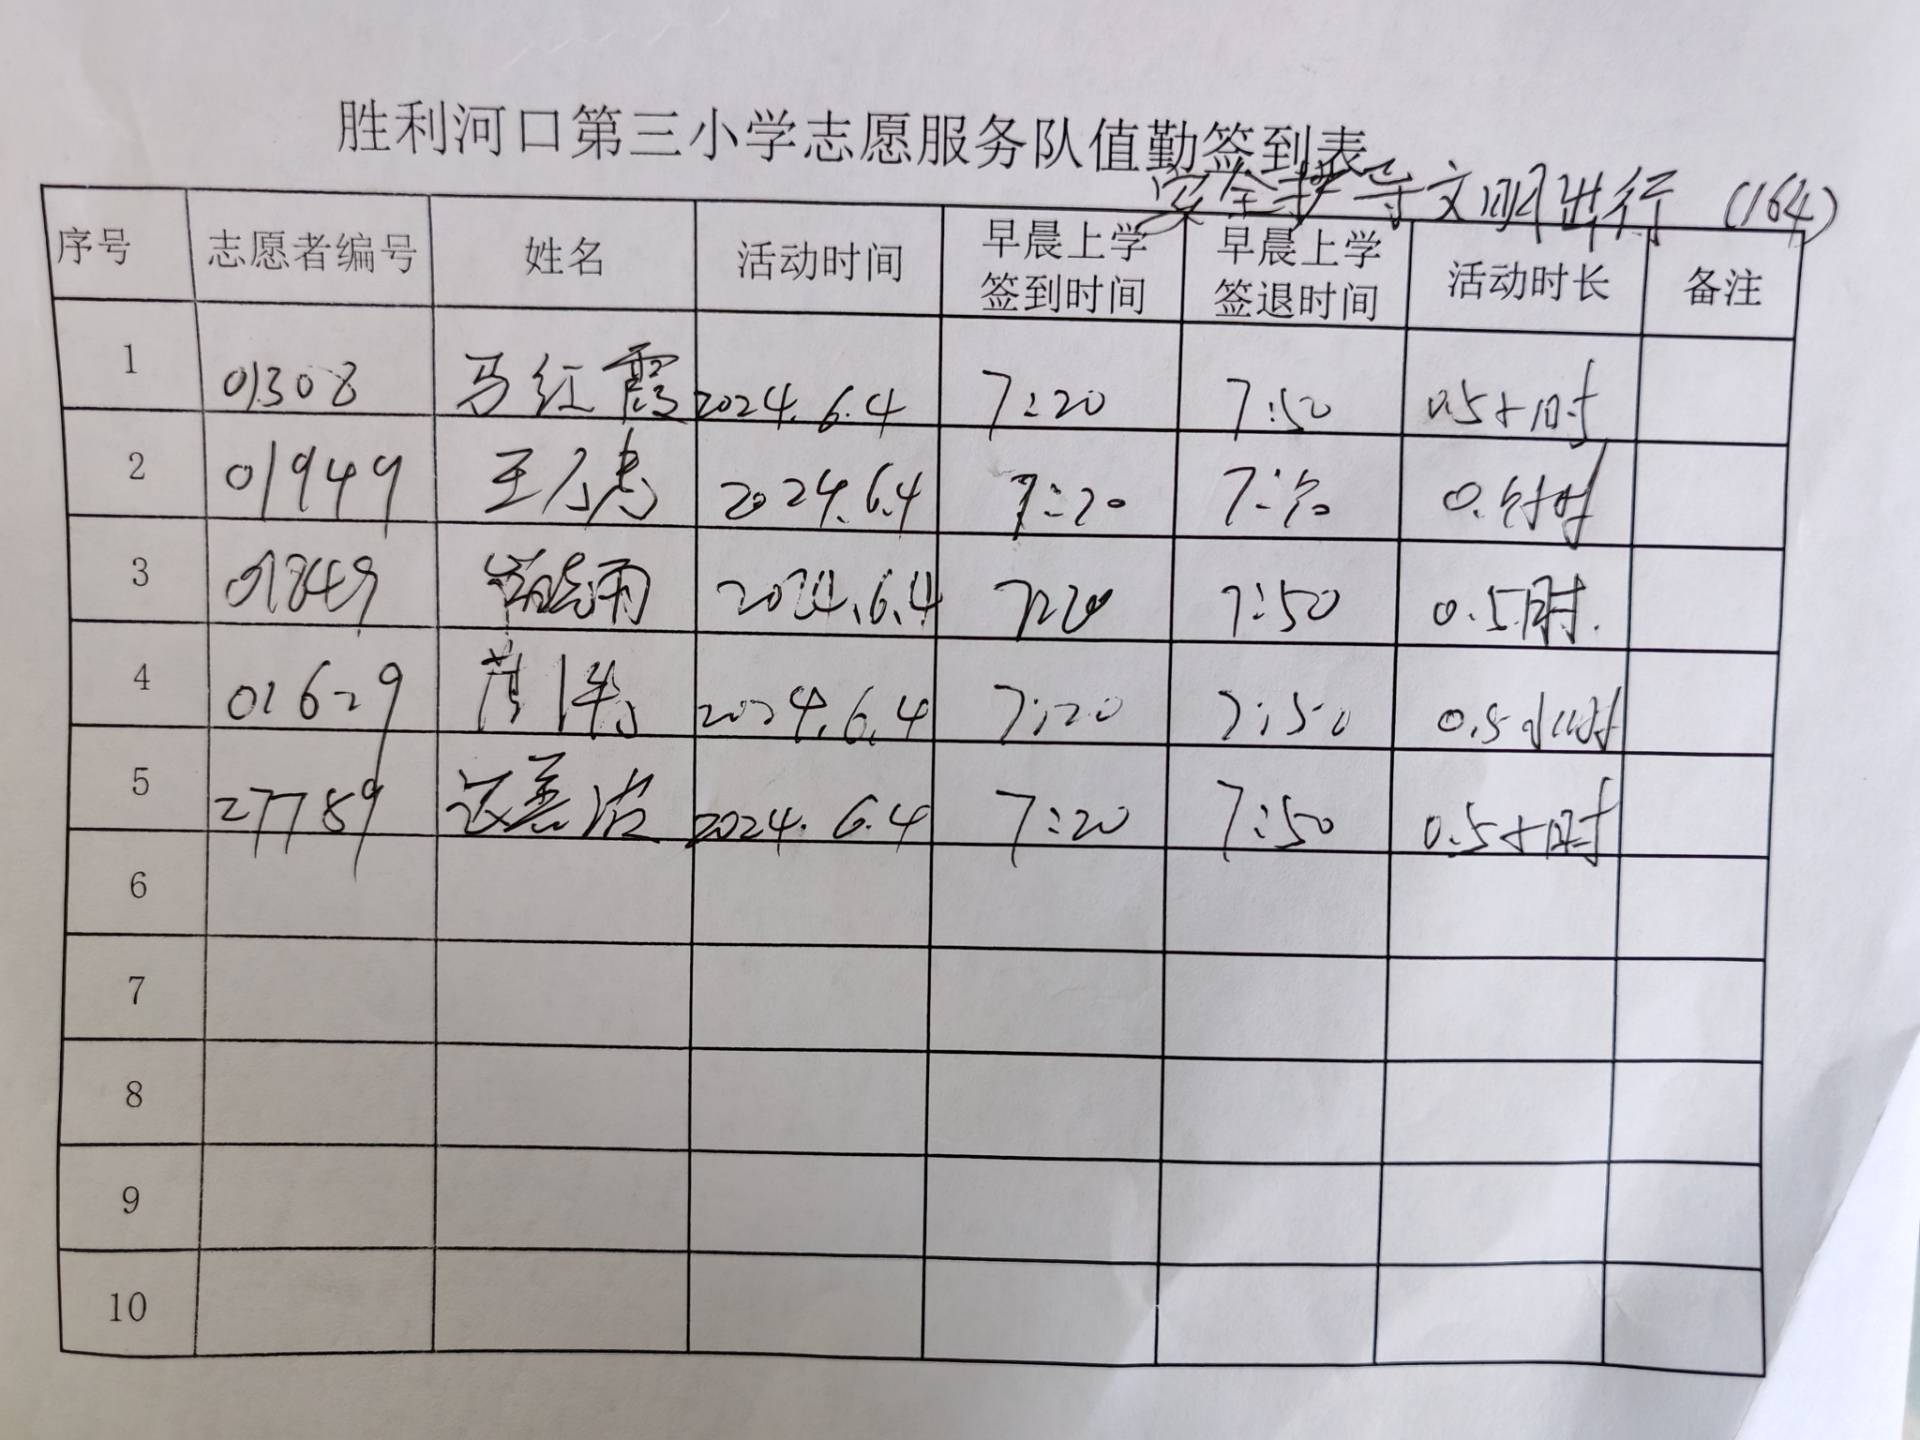 胜利河口第三小学志愿服务队值勤签到表
安全护导文明出行 (164)
序号 志愿者编号 姓名 活动时间 早晨上学签到时间 早晨上学签退时间 活动时长 备注
1 01308 马红霞 2024.6.4 7:20 7:50 0.5小时
2 01949 王 2024.6.4 7:20 7:50 0.5小时
3 01849 晓雨 2024.6.4 7:20 7:50 0.5小时.
4 01629 2024.6.4 7:20 7:50 0.5小时
5 27789 2024.6.4 7:20 7:50 0.5小时
6
7
8
9
10